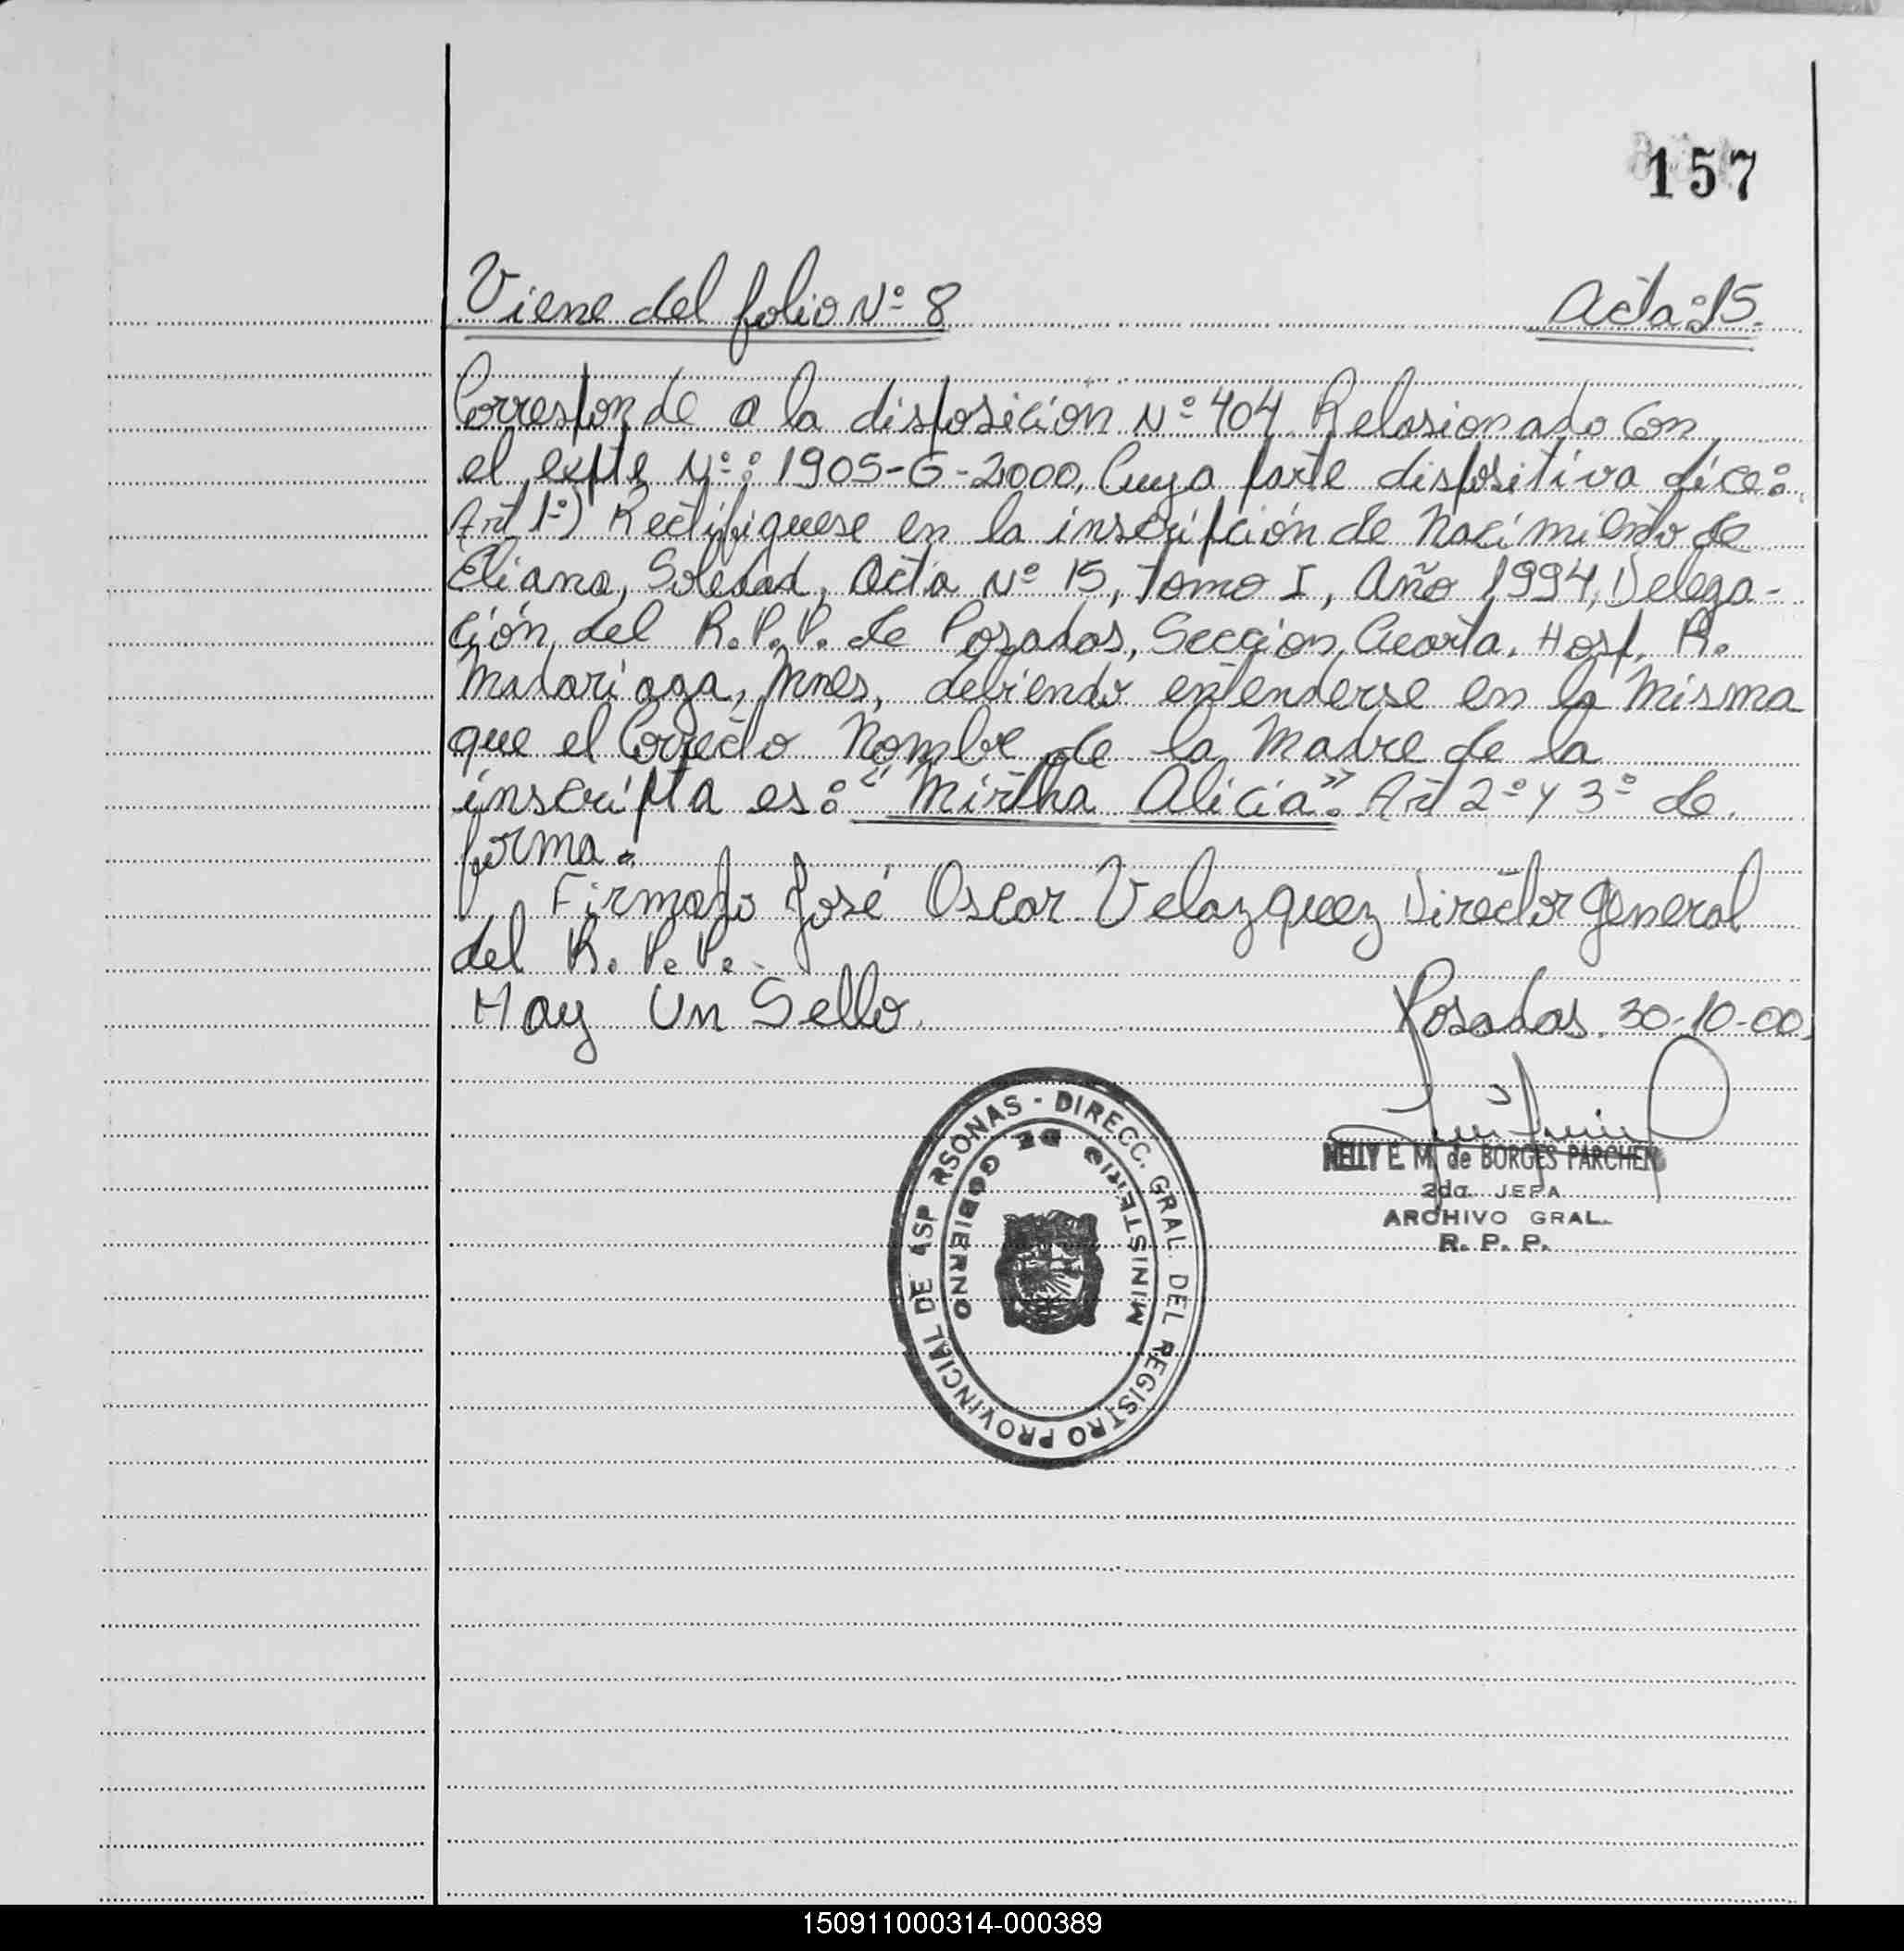 157
Viene del folio Nº 8 Acta:15.
Corresponde a la disposición Nº 404 Relasionado Con
el expte Nº: 1905-G-2000, Cuya parte dispositiva dice:
Art 1º) Rectifiquese en la inscripción de Nacimiento de
Eliana, Soledad, Acta Nº 15, Tomo I, Año 1994, Delega-
ción del R.P.P. de Posadas, Sección Cuarta. Hosp. R.
Madariaga, Mnes, debiendo entenderse en la Misma
que el Correcto Nombre de la Madre de la
inscripta es: "Mirtha Alicia". Art 2º y 3º de
forma.
Firmado José Oscar Velazquez Director General
del R.P.P.
Hay Un Sello. Posadas. 30-10-00
NELLY E. M. de BORGES PARCHEN
2da. JEFA
ARCHIVO GRAL.
R. P. P.
DIRECC. GRAL. DEL REGISTRO PROVINCIAL DE LAS P RSONAS -
MINISTERIO DE GOBIERNO
150911000314-000389